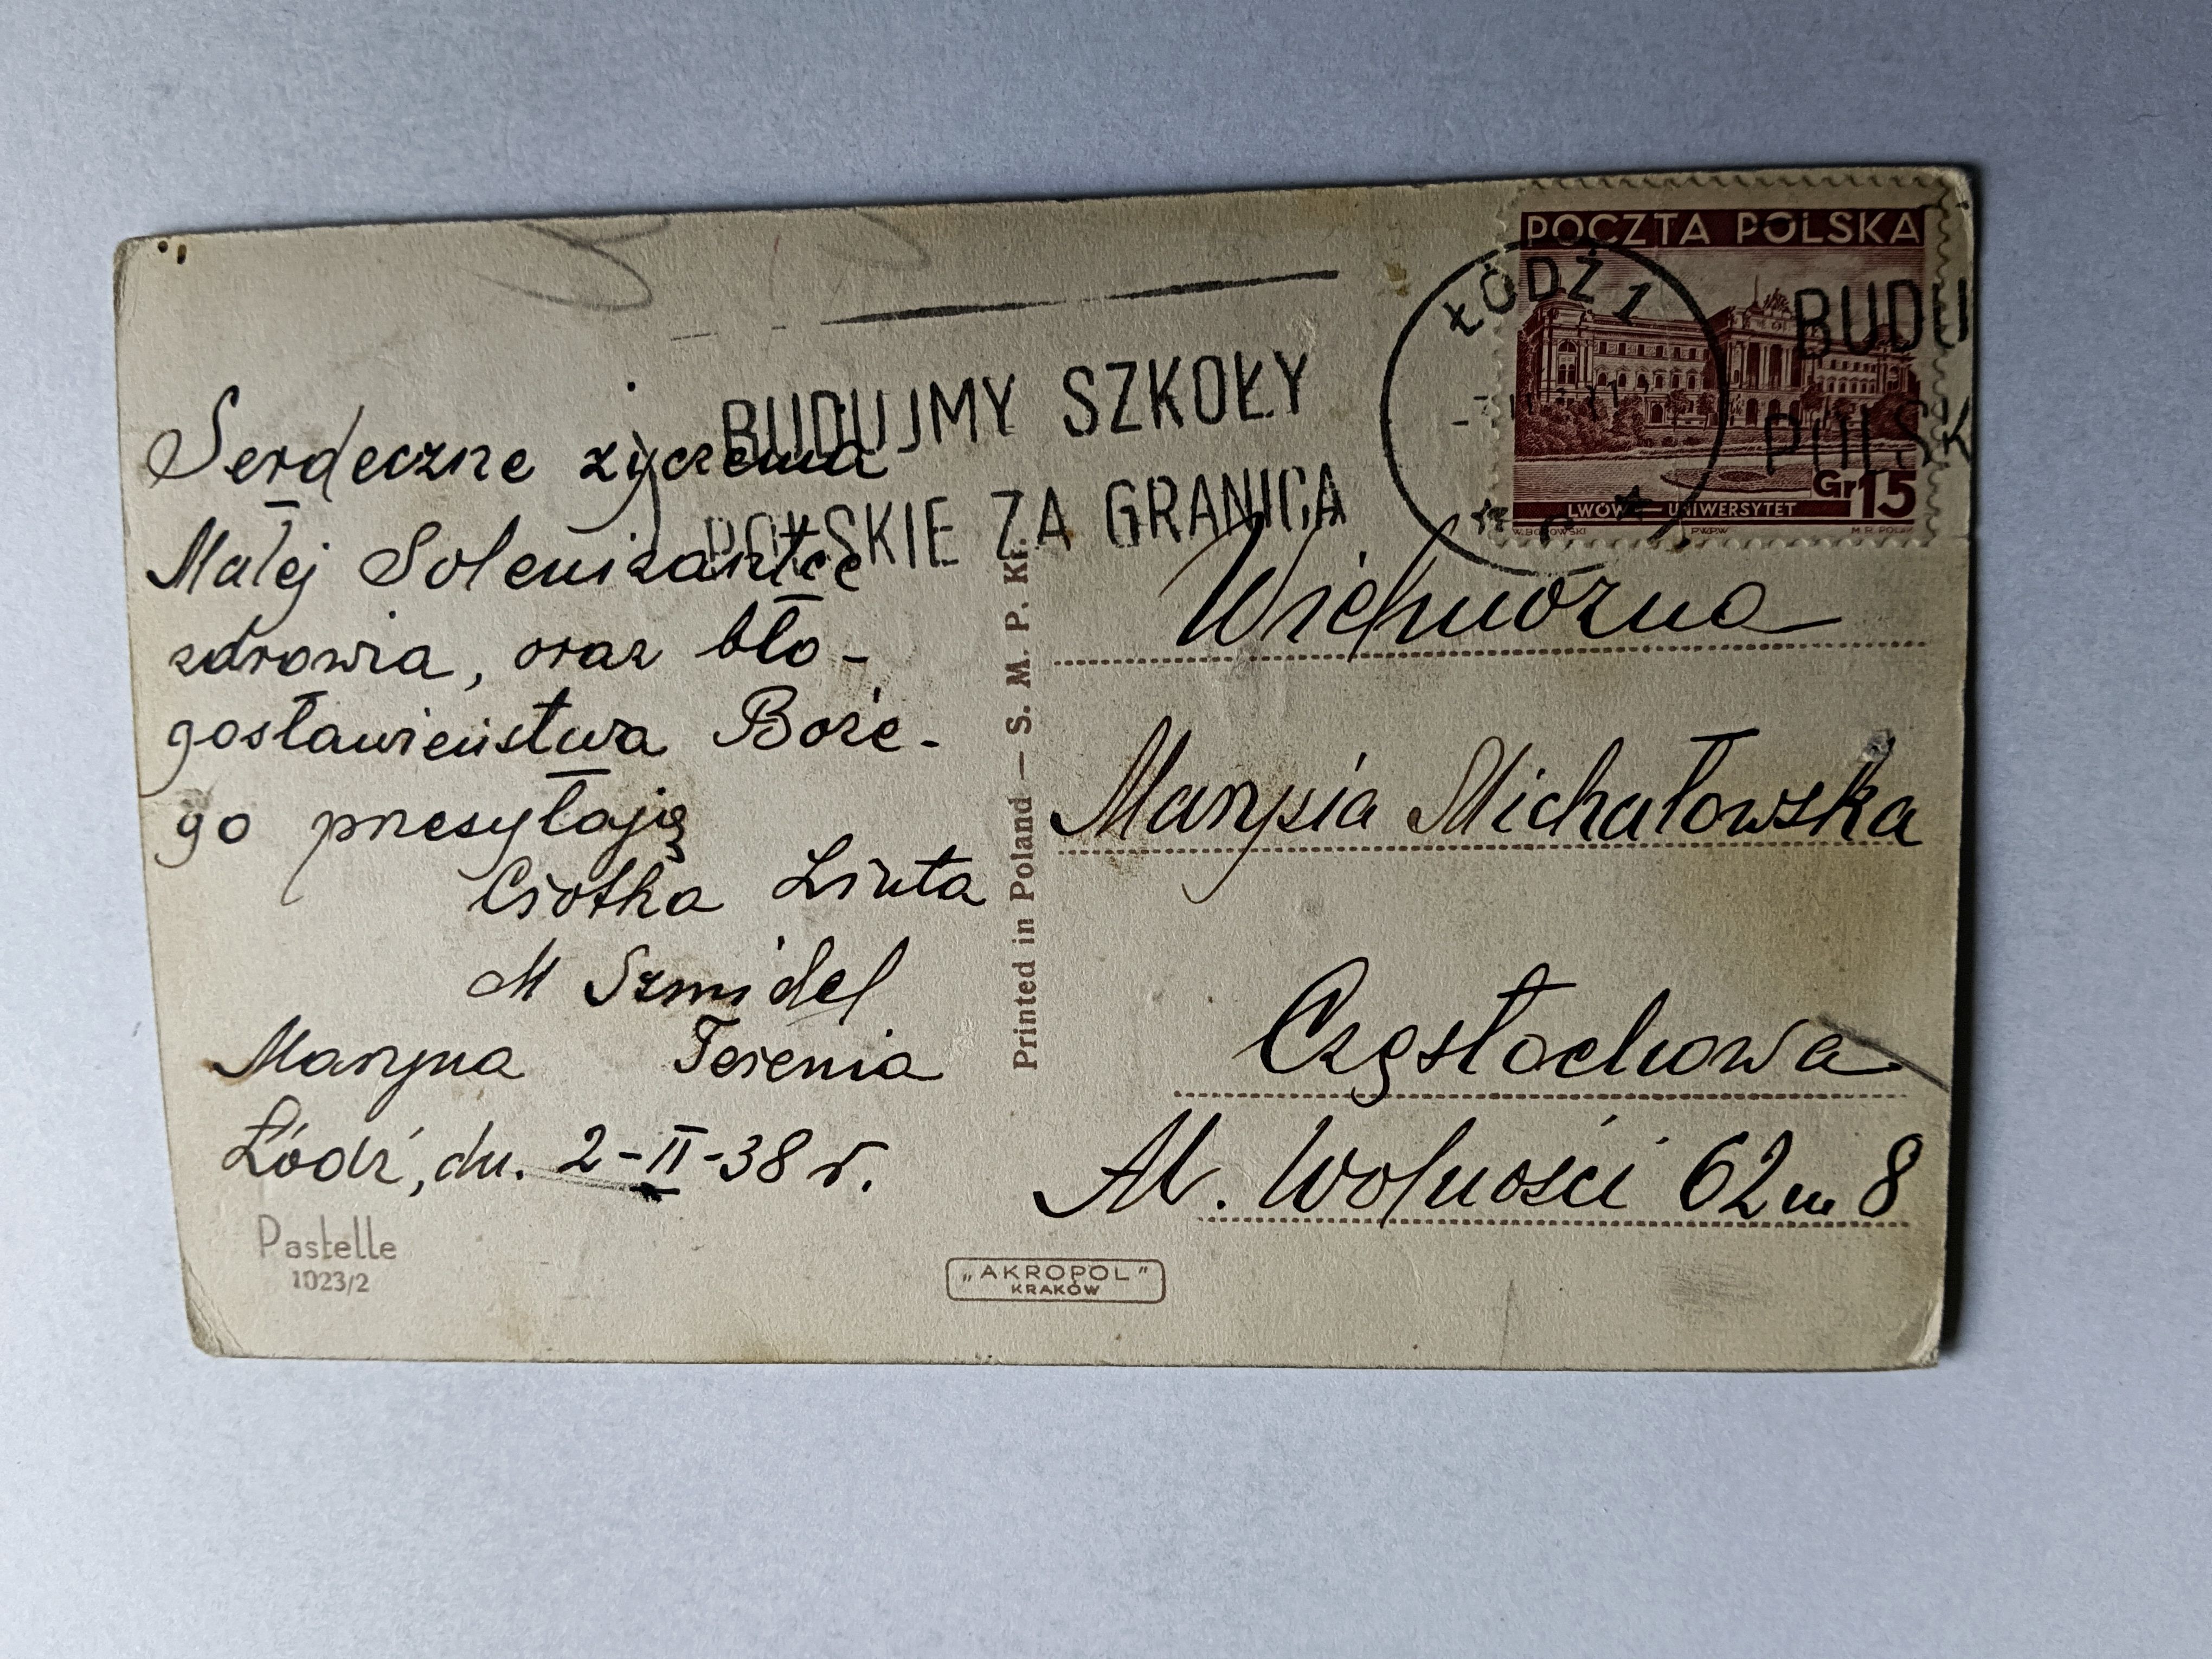 POCZTA POLSKA
ŁÓDŹ 1
BUDU
POLSK
Gr 15
LWÓW — UNIWERSYTET
W. BOROWSKI PWPW M. R. POLAK
BUDUJMY SZKOŁY
POLSKIE ZA GRANICĄ
Serdeczne życzenia
Małej Solenizantce
zdrowia, oraz bło-
gosławieństwa Boże-
go przesyłają
Ciotka Liuta
M Szmidel
Maryna Terenia
Łódź, dn. 2-II-38 r.
Pastelle
1023/2
Printed in Poland — S. M. P. Kr.
"AKROPOL"
KRAKÓW
Wielmożna
Marysia Michałowska
Częstochowa
Al. Wolności 62 m 8